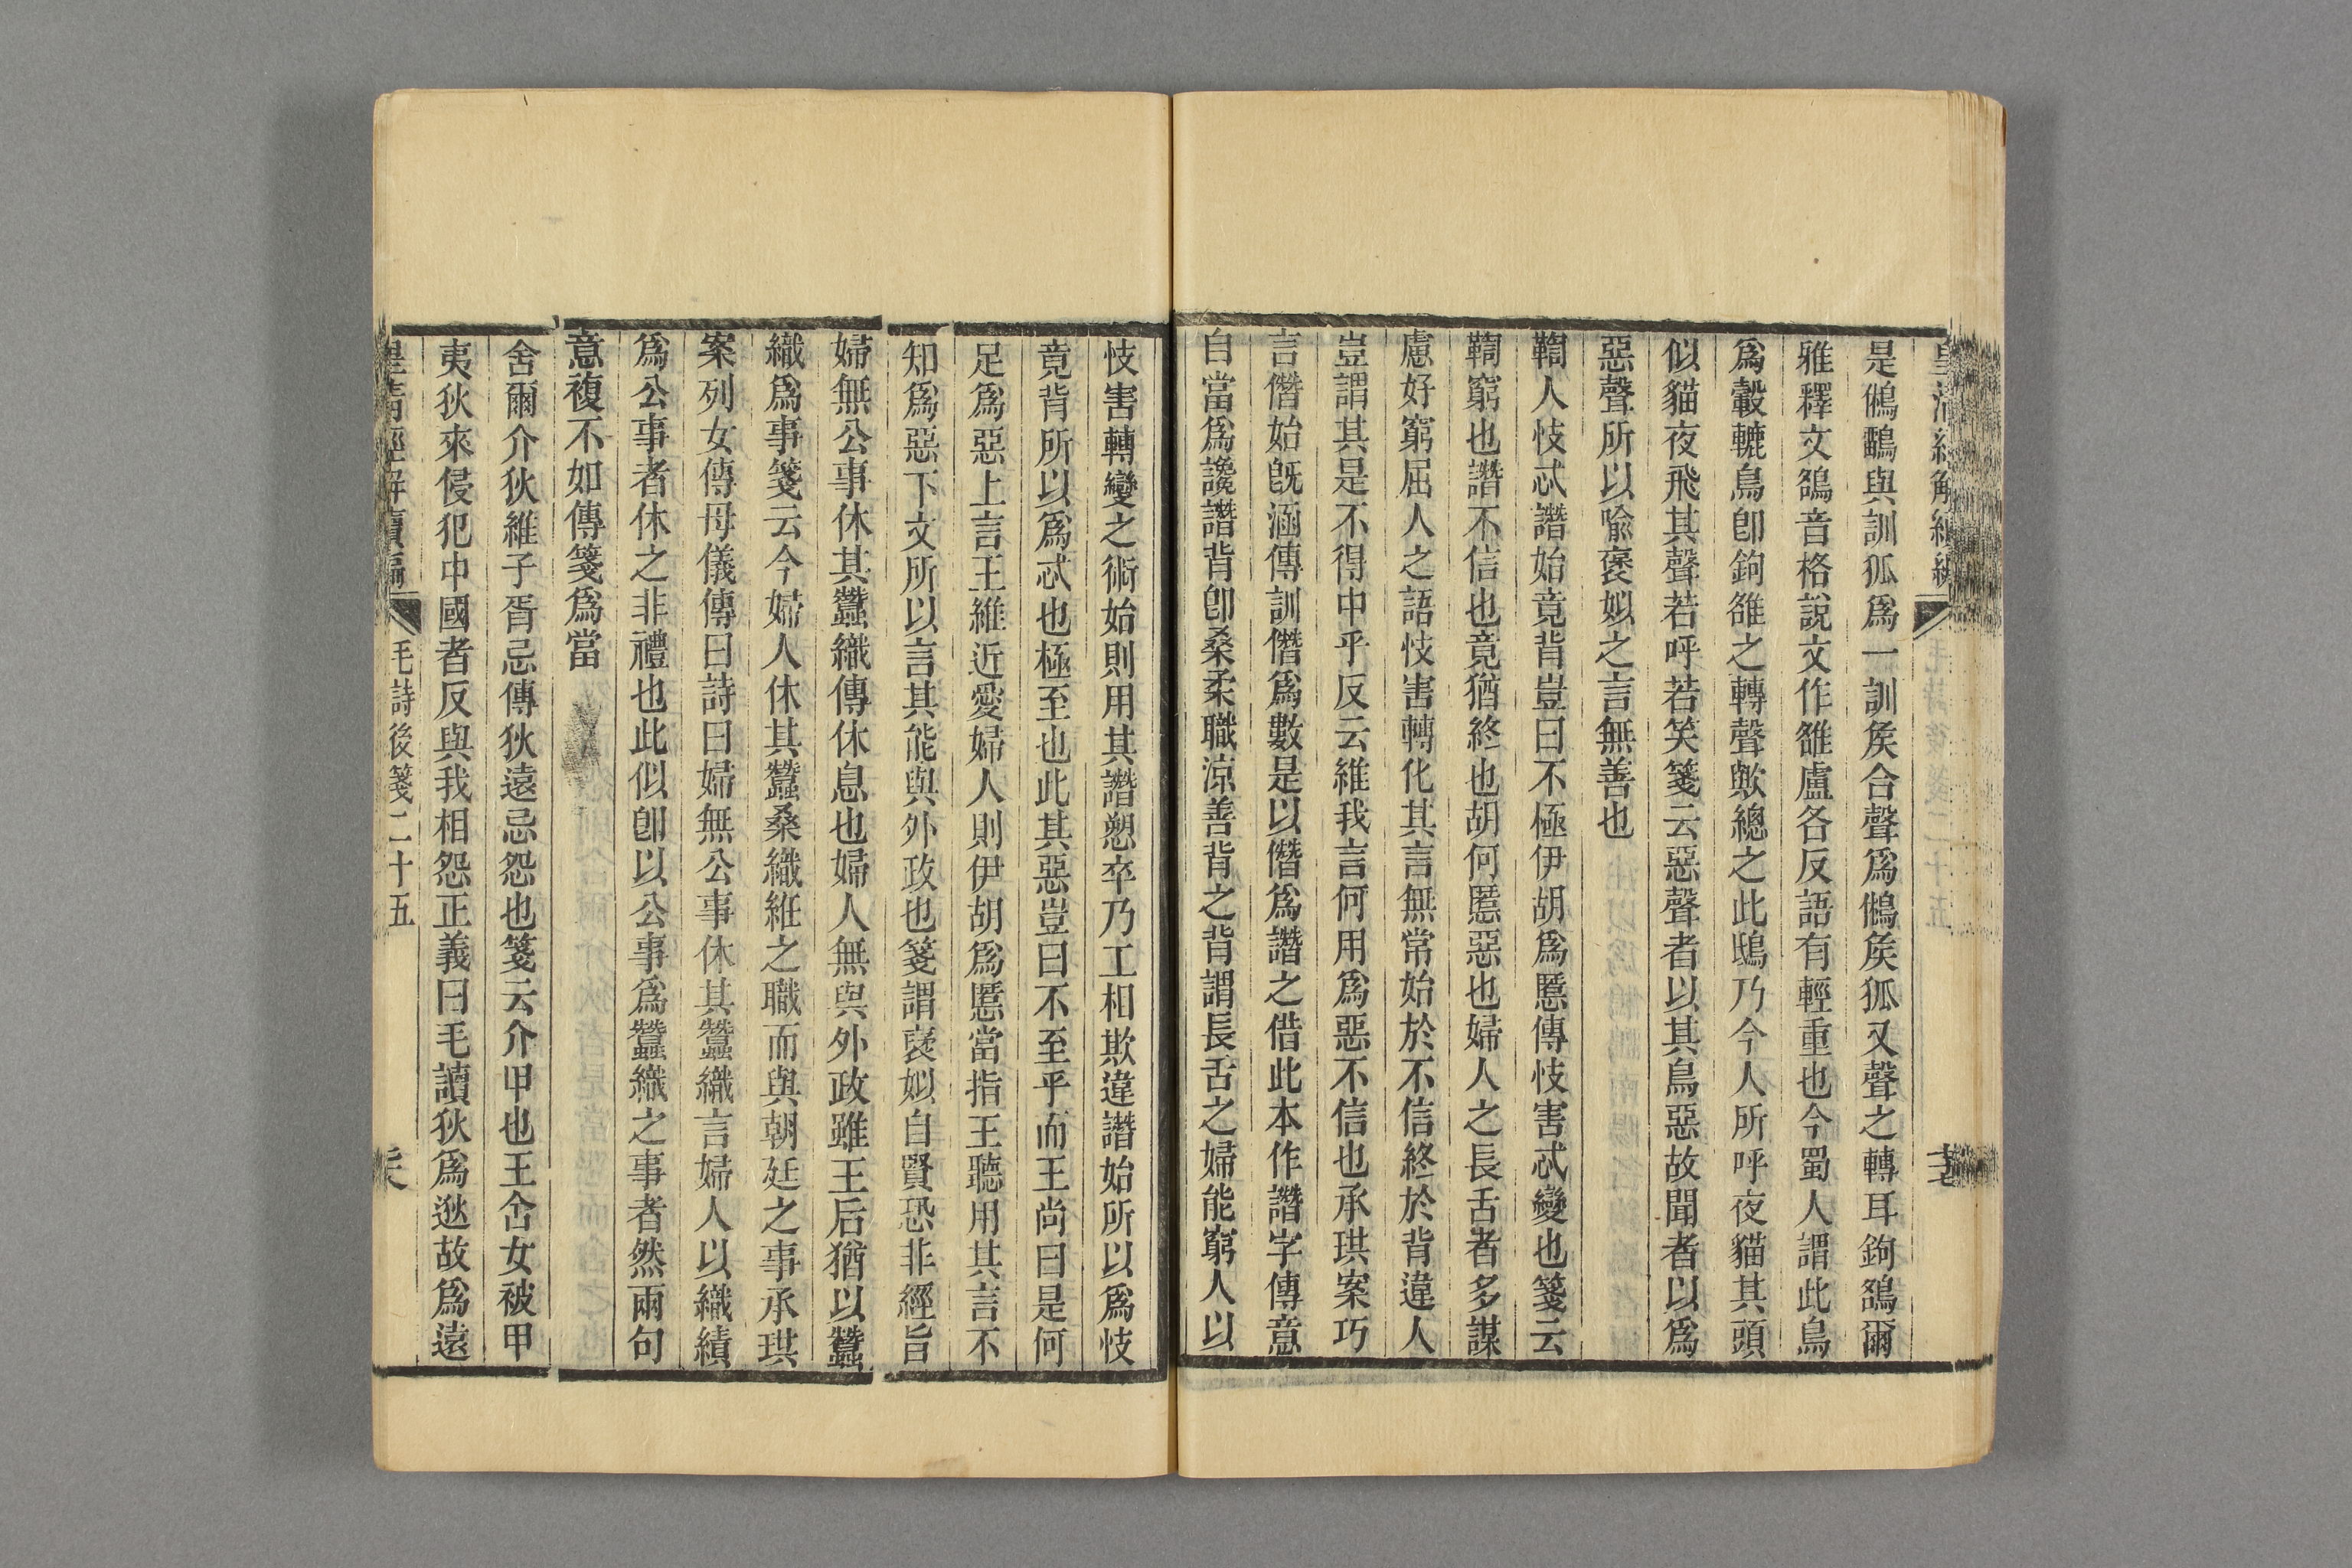 是鵂鶹與訓狐爲一訓矦合聲爲鵂矦狐又聲之轉耳鉤鵅爾
雅釋文鵅音格說文作雒盧各反語有輕重也今蜀人謂此鳥
爲轂轆鳥卽鉤雒之轉聲歟總之此鴟乃今人所呼夜貓其頭
似貓夜飛其聲若呼若笑箋云惡聲者以其鳥惡故聞者以爲
惡聲所以喻褒姒之言無善也
鞫人忮忒譖始竟背豈曰不極伊胡爲慝傳忮害忒變也箋云
鞫窮也譖不信也竟猶終也胡何慝惡也婦人之長舌者多謀
慮好窮屈人之語忮害轉化其言無常始於不信終於背違人
豈謂其是不得中乎反云維我言何用爲惡不信也承珙案巧
言僭始旣涵傳訓僭爲數是以僭爲譖之借此本作譖字傳意
自當爲讒譖背卽桑柔職涼善背之背謂長舌之婦能窮人以
忮害轉變之術始則用其譖愬卒乃工相欺違譖始所以爲忮
竟背所以爲忒也極至也此其惡豈曰不至乎而王尚曰是何
足爲惡上言王維近愛婦人則伊胡爲慝當指王聽用其言不
知爲惡下文所以言其能與外政也箋謂褒姒自賢恐非經旨
婦無公事休其蠶織傳休息也婦人無與外政雖王后猶以蠶
織爲事箋云今婦人休其蠶桑織維之職而與朝廷之事承珙
案列女傳母儀傳曰詩曰婦無公事休其蠶織言婦人以織績
爲公事者休之非禮也此似卽以公事爲蠶織之事者然兩句
意複不如傳箋爲當
舍爾介狄維子胥忌傳狄遠忌怨也箋云介甲也王舍女被甲
夷狄來侵犯中國者反與我相怨正義曰毛讀狄爲逖故爲遠
皇清經解續編 毛詩後箋二十五